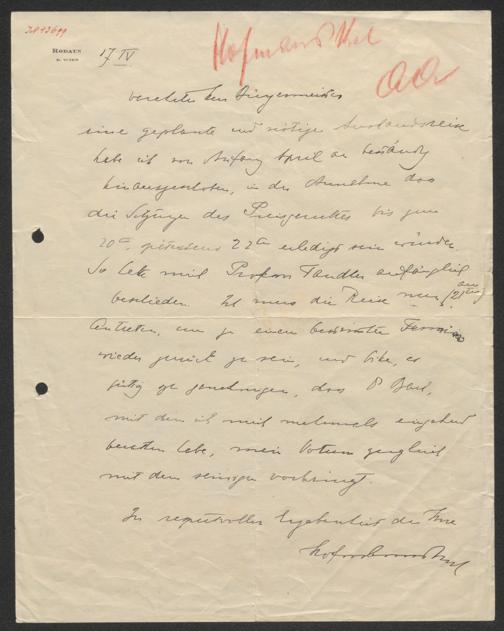 Hofmannsthal
RODAUN
B. WIEN
17 IV
verehrter Herr Bürgermeister
eine geplante und nötige Auslandsreise
habe ich von Anfang April an beständig
hinausgeschoben, in der Annahme das
die Sitzungen des Preisgerichtes bis zum
20ten spätestens 22ten erledigt sein würden.
So habe mich Professor Tandler anfänglich
beschieden. Ich muss die Reise nun am 21
antreten, um zu einem bestimmten Termin
wieder zurück zu sein, und bitte, es
gütig zu genehmigen, dass D Bach,
mit dem ich mich mehrmals eingehend
beraten habe, mein Votum zugleich
mit dem seinigen vorbringt.
In respectvoller Ergebenheit der Ihre
Hofmannsthal